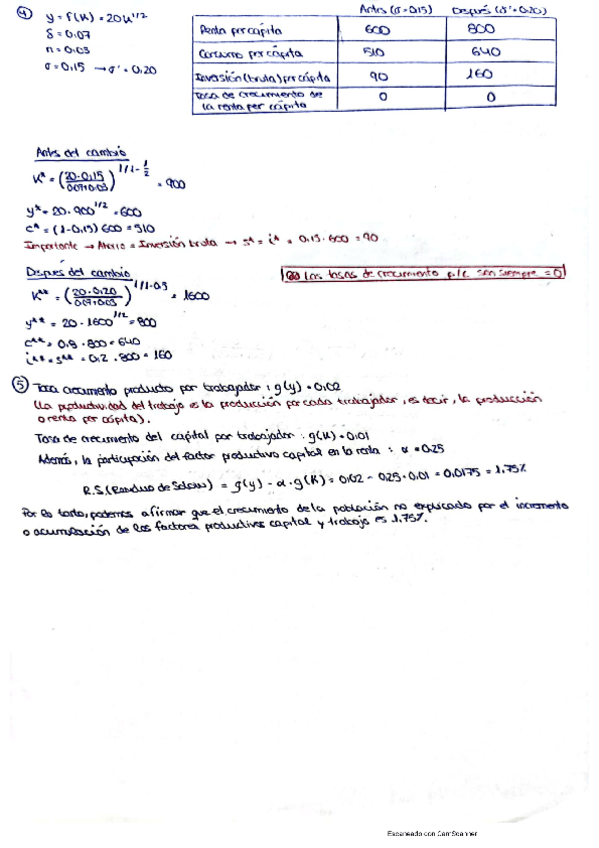 ④ y = f(k) = 20k^1/2
δ = 0.07
n = 0.03
σ = 0.15 → σ' = 0.20
Antes (σ = 0.15) Después (σ' = 0.20)
Renta per cápita 600 800
Consumo per cápita 510 640
Inversión (bruta) per cápita 90 160
Tasa de crecimiento de la renta per cápita 0 0
Antes del cambio
K* = (20·0.15 / 0.07+0.03)^1/1-1/2 = 900
y* = 20·900^1/2 = 600
c* = (1-0.15) 600 = 510
Importante → Ahorro = Inversión bruta → s* = i* = 0.15·600 = 90
Después del cambio
K** = (20·0.20 / 0.07+0.03)^1/1-0.5 = 1600
Las tasas de crecimiento p.c. son siempre = 0
y** = 20·1600^1/2 = 800
c** = 0.8·800 = 640
i** = s** = 0.2·800 = 160
⑤ Tasa crecimiento producto por trabajador: g(y) = 0.02
(La productividad del trabajo es la producción por cada trabajador, es decir, la producción
o renta per cápita).
Tasa de crecimiento del capital por trabajador: g(k) = 0.01
Además, la participación del factor productivo capital en la renta: α = 0.25
R.S. (Residuo de Solow) = g(y) - α·g(k) = 0.02 - 0.25·0.01 = 0.0175 = 1.75%
Por lo tanto, podemos afirmar que el crecimiento de la población no explicado por el incremento
o acumulación de los factores productivos capital y trabajo es 1.75%.
Escaneado con CamScanner